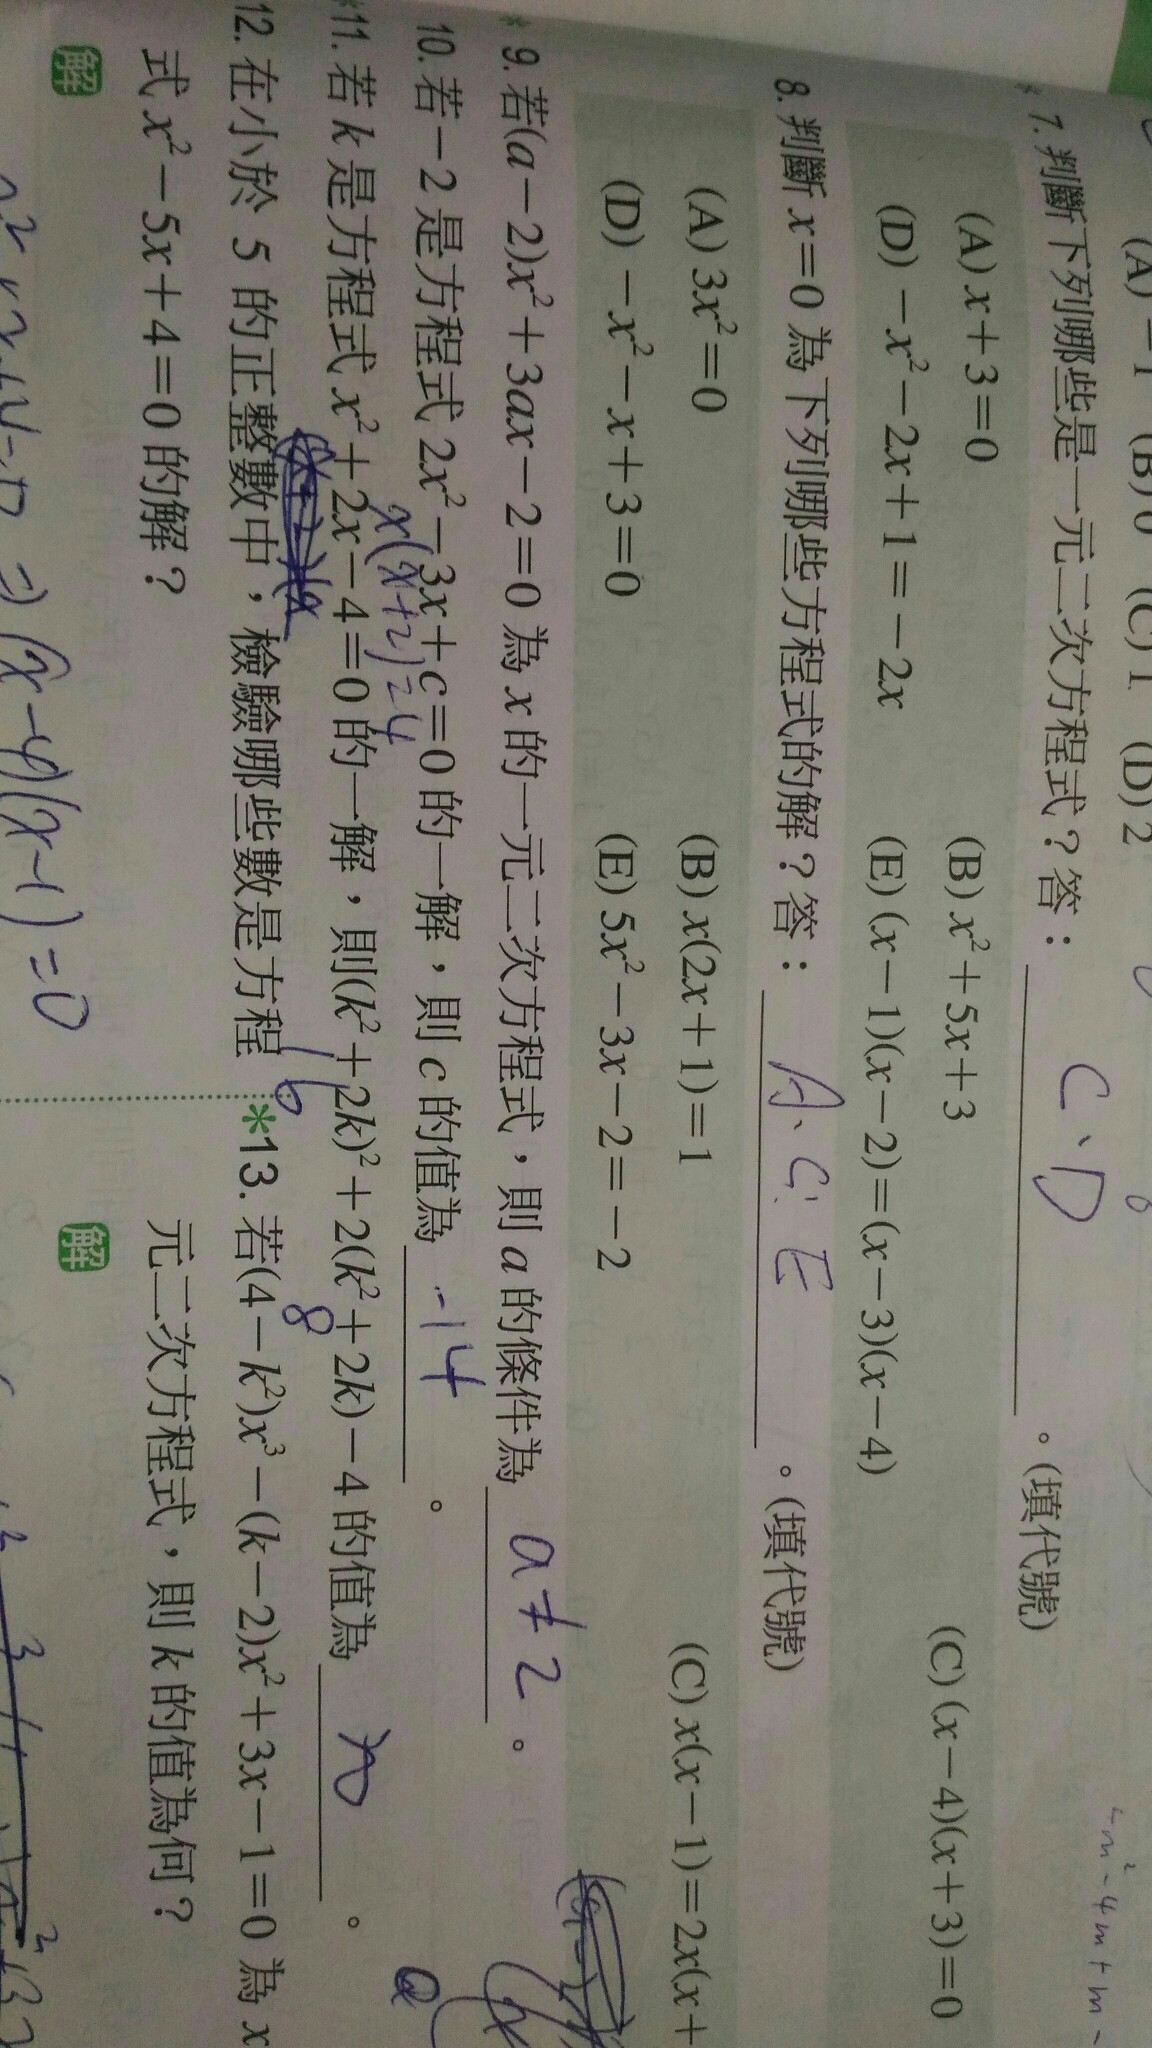 (A) −1 (B) 0 (C) 1 (D) 2
* 7. 判斷下列哪些是一元二次方程式？答：C、D。(填代號)
(A) x+3=0 (B) x²+5x+3 (C) (x−4)(x+3)=0
(D) −x²−2x+1=−2x (E) (x−1)(x−2)=(x−3)(x−4)
8. 判斷 x=0 為下列哪些方程式的解？答：A、C、E。(填代號)
(A) 3x²=0 (B) x(2x+1)=1 (C) x(x−1)=2x(x+
(D) −x²−x+3=0 (E) 5x²−3x−2=−2
* 9. 若(a−2)x²+3ax−2=0 為 x 的一元二次方程式，則 a 的條件為 a≠2。
10. 若−2 是方程式 2x²−3x+c=0 的一解，則 c 的值為 -14。
x(x+2)=4
*11. 若 k 是方程式 x²+2x−4=0 的一解，則(k²+2k)²+2(k²+2k)−4 的值為 20。
16 8
12. 在小於 5 的正整數中，檢驗哪些數是方程
式 x²−5x+4=0 的解？
解
=) (x-4)(x-1)=0
*13. 若(4−k²)x³−(k−2)x²+3x−1=0 為 x
元二次方程式，則 k 的值為何？
解